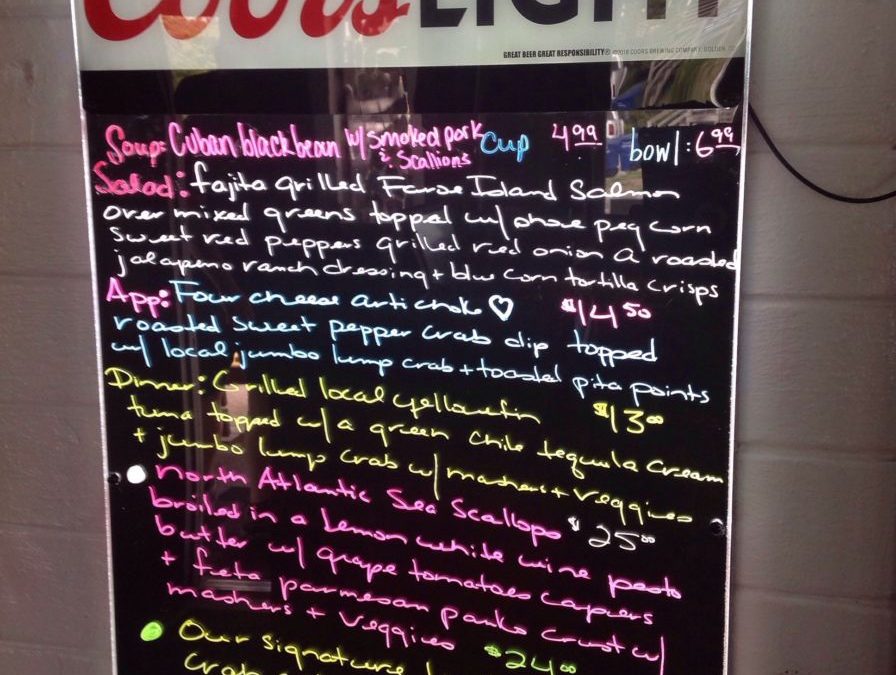 Coors LIGHT
GREAT BEER GREAT RESPONSIBILITY® ©2018 COORS BREWING COMPANY, GOLDEN, CO
Soup: Cuban black bean w/ smoked pork & Scallions Cup 4.99 bowl: 6.99
Salad: fajita grilled Faroe Island Salmon
over mixed greens topped w/ shoe peg corn
sweet red peppers grilled red onion a roasted
jalapeno ranch dressing + blue corn tortilla crisps
$14.50
App: Four cheese artichoke ♡
roasted sweet pepper crab dip topped
w/ local jumbo lump crab + toasted pita points
$13.00
Dinner: Grilled local yellowfin
tuna topped w/ a green chile tequila cream
+ jumbo lump crab w/ mashers + veggies
$25.00
North Atlantic Sea Scallops
broiled in a lemon white wine pesto
butter w/ grape tomatoes capers
+ feta parmesan panko crust w/
mashers + veggies $24.00
Our signature
crab